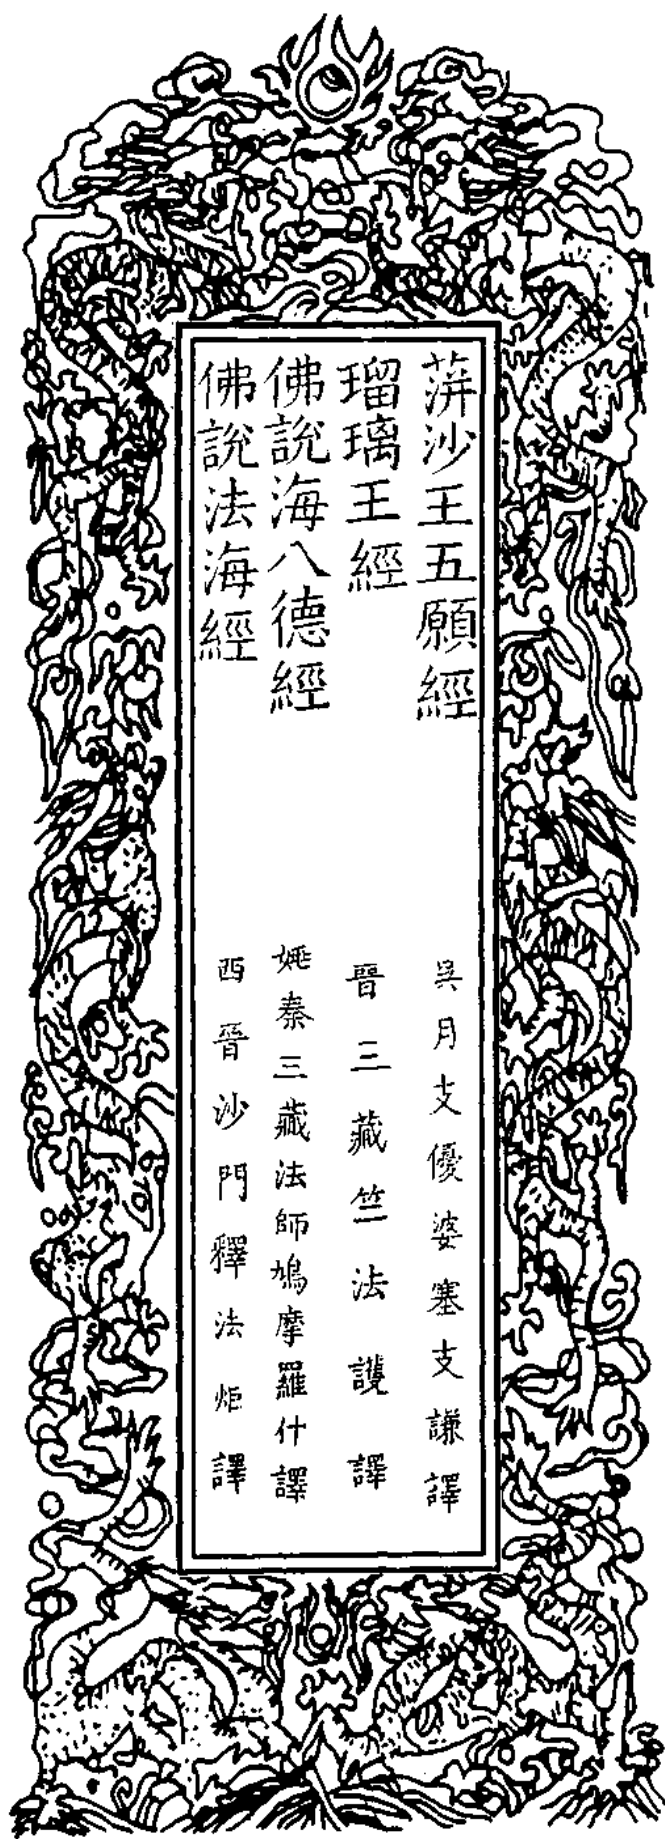 蓱沙王五願經　吳月支優婆塞支謙譯
瑠璃王經　晉三藏竺法護譯
佛說海八德經　姚秦三藏法師鳩摩羅什譯
佛說法海經　西晉沙門釋法炬譯